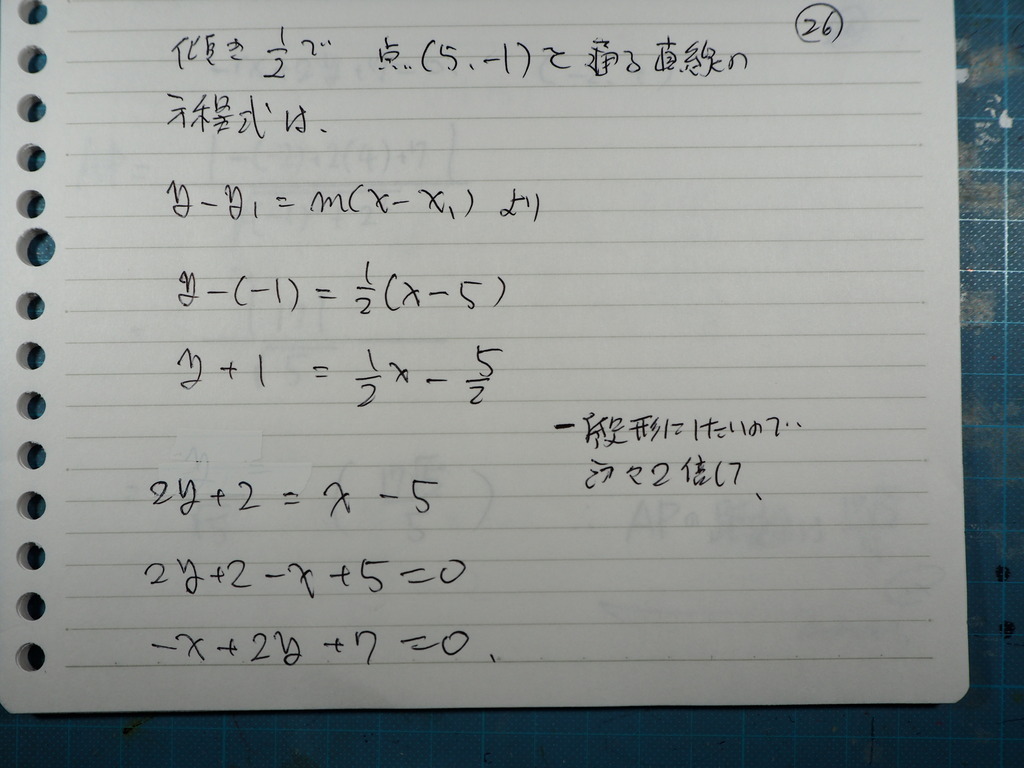 26
傾き 1/2 で 点(5、-1)を通る直線の
方程式は、
y-y₁ = m(x-x₁) より
y-(-1) = 1/2(x-5)
y+1 = 1/2x - 5/2
一般形にしたいので
2倍して、
2y+2 = x -5
2y+2-x+5=0
-x+2y+7=0、